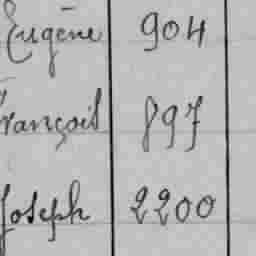 Eugène 904
François 897
Joseph 2200